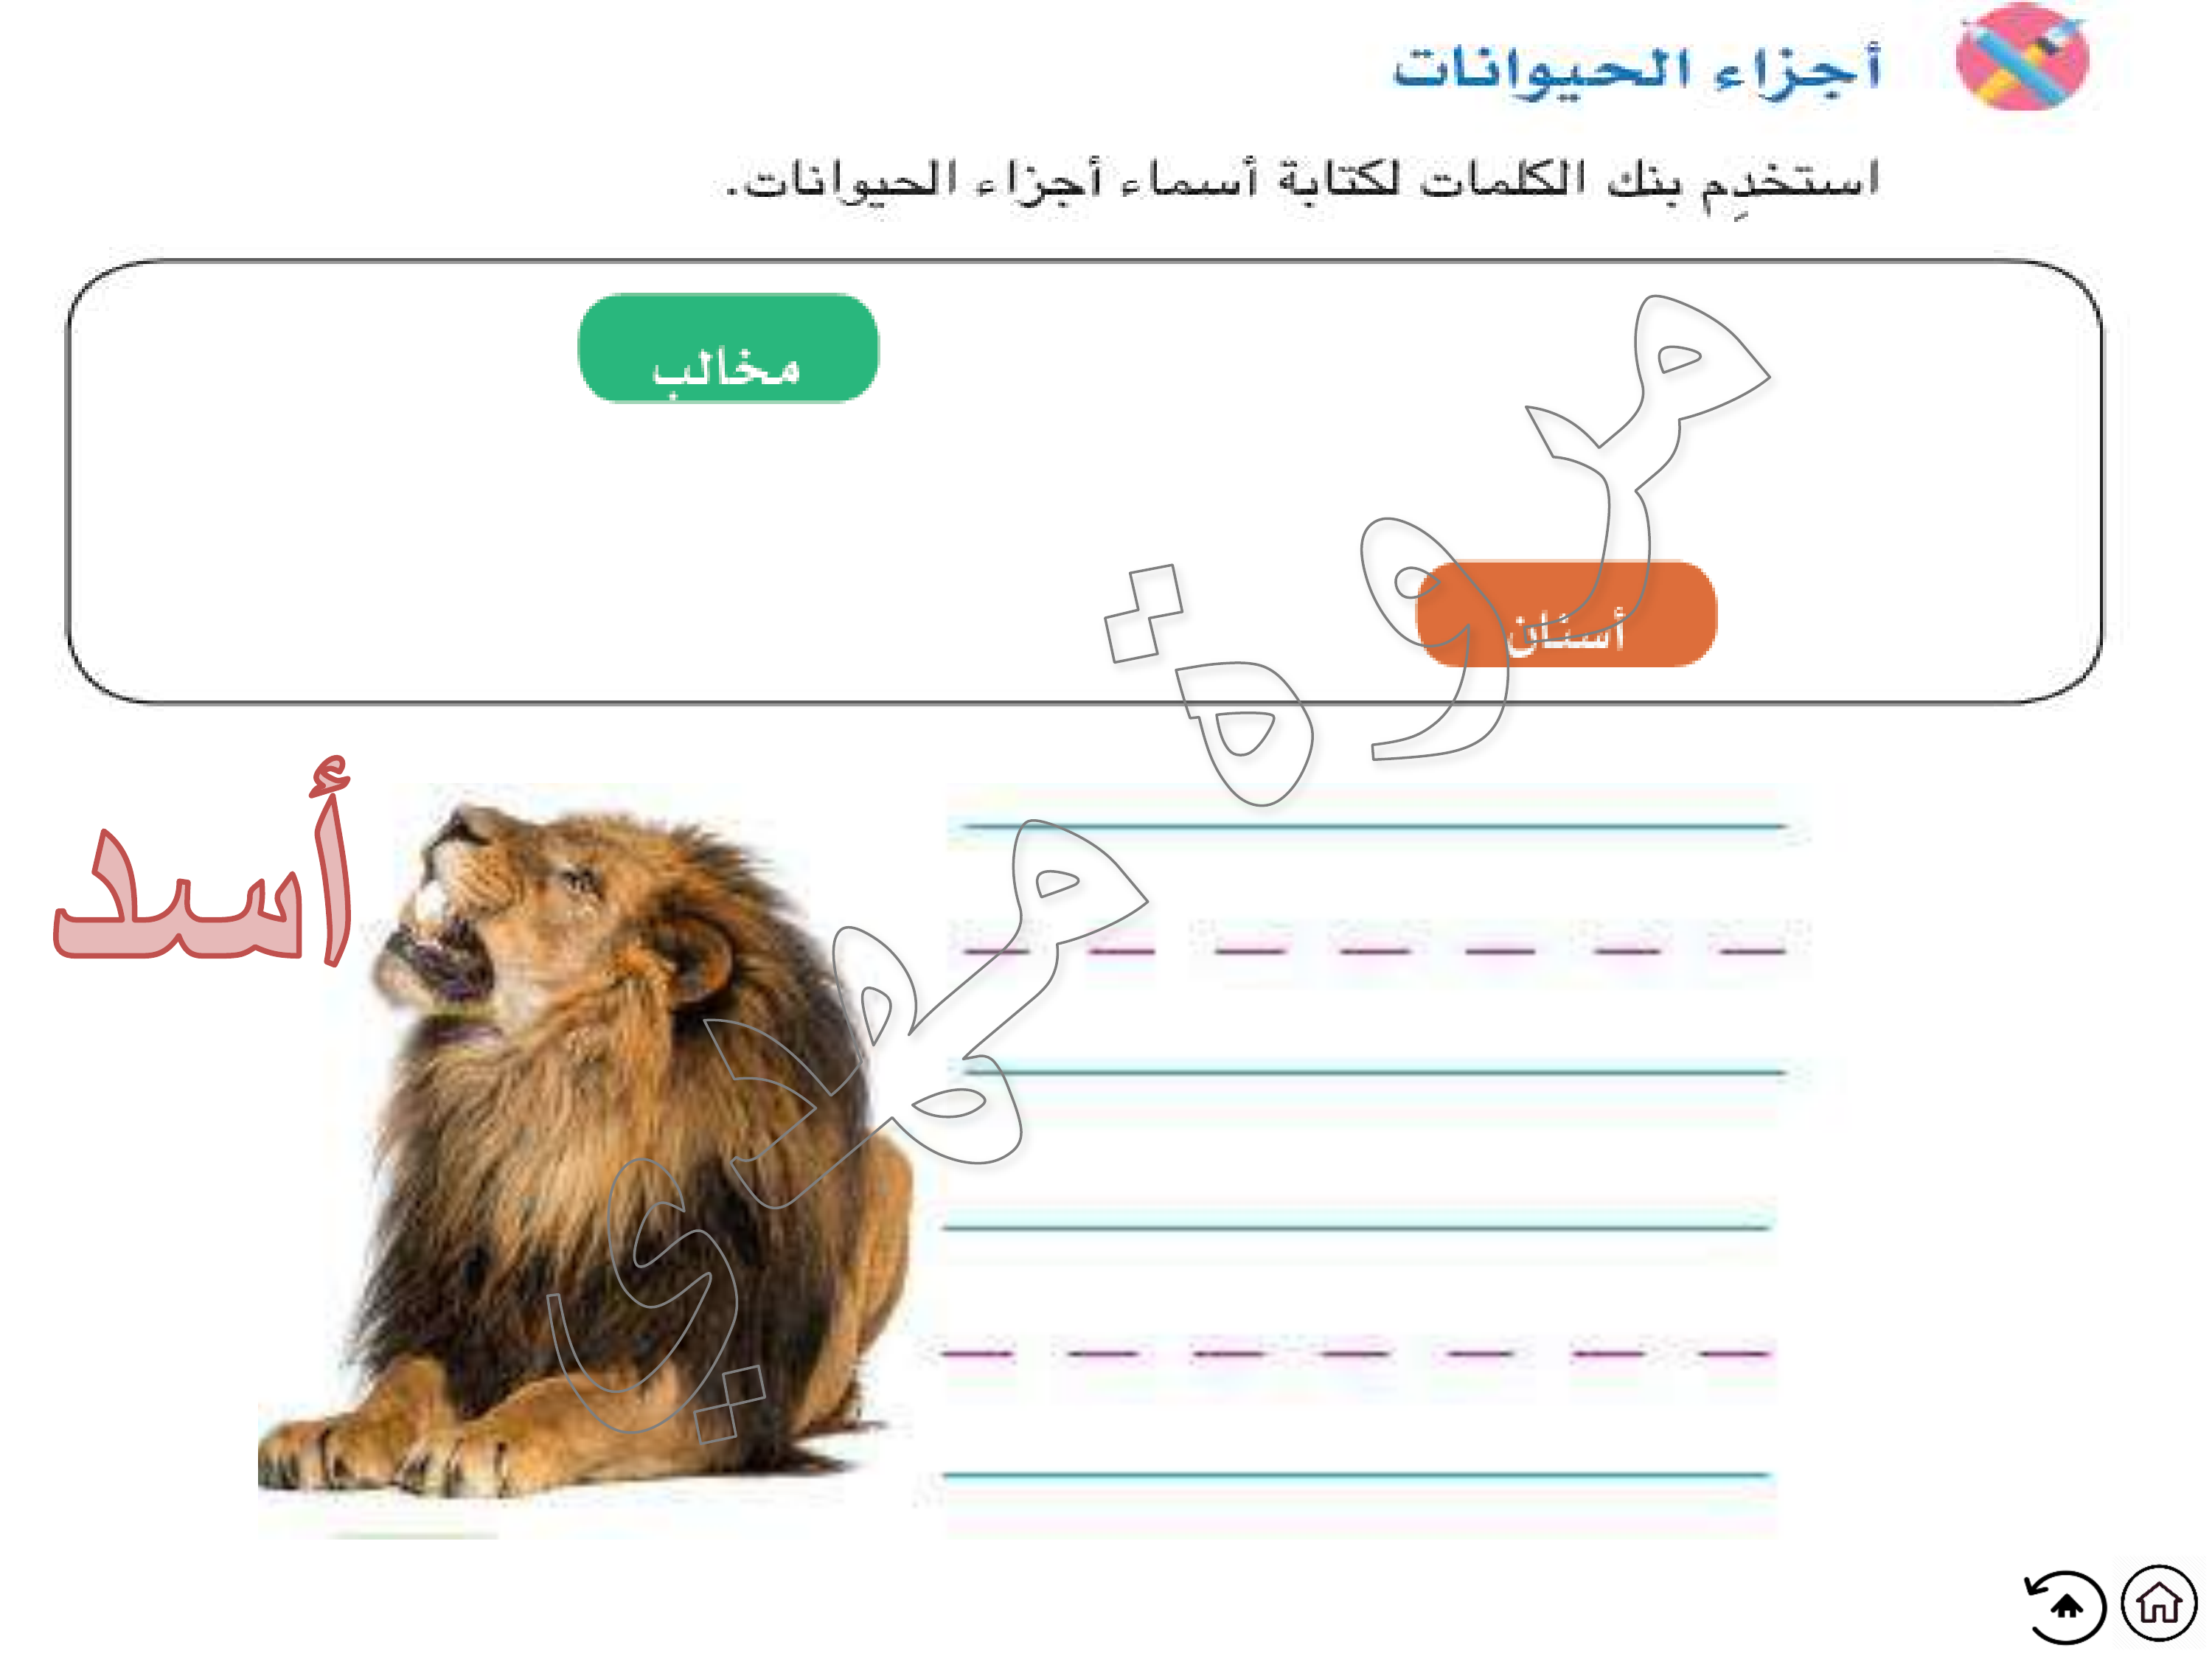 أجزاء الحيوانات
استخدِم بنك الكلمات لكتابة أسماء أجزاء الحيوانات.
مخالب
أسنان
أسد
مروة مهدي